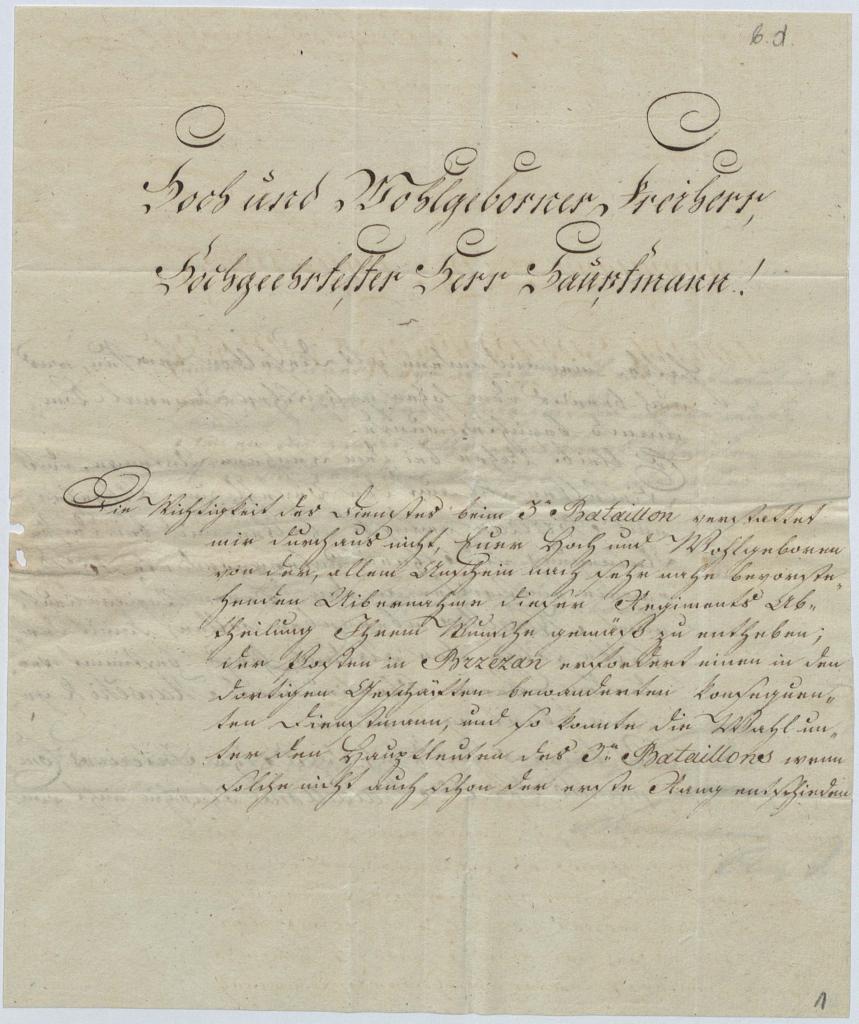 6. d.
Hoch und Wohlgeborner Freiherr,
Hochgeehrtester Herr Hauptmann!
Die Wichtigkeit des Dienstes beim 3n Bataillon verstattet
mir durchaus nicht, Euer Hoch und Wohlgeboren
von der, allem Anschein nach sehr nahe bevorste-
henden Uibernahme dieser Regiments Ab-
theilung Ihrem Wunsche gemäß zu entheben;
der Posten in Brzezan erfordert einen in den
dortigen Geschäften bewanderten konsequen-
ten Dienstmann, und so konnte die Wahl un-
ter den Hauptleuten des 3n Bataillons wenn
solche nicht auch schon der erste Rang entschieden
1